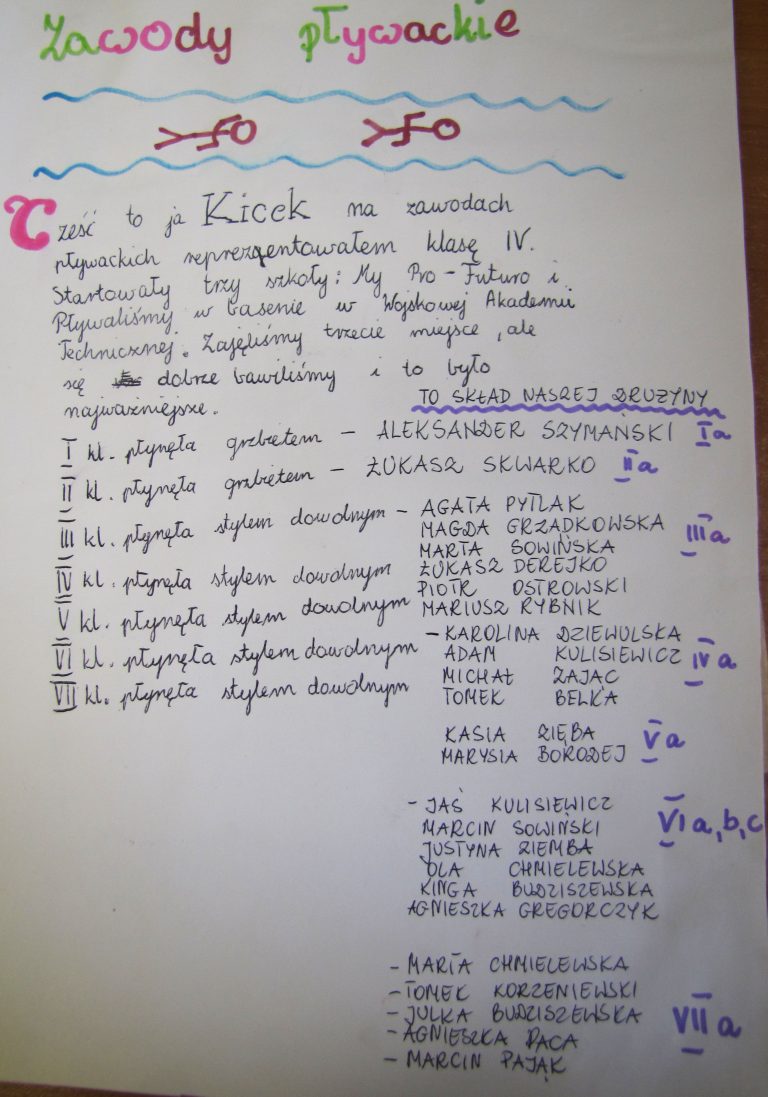 Zawody pływackie
Cześć to ja Kicek na zawodach
pływackich reprezentowałem klasę IV.
Startowały trzy szkoły: My Pro-Futuro i.
Pływaliśmy w basenie w Wojskowej Akademii
Technicznej. Zajęliśmy trzecie miejsce, ale
się dobrze bawiliśmy i to było
najważniejsze.
TO SKŁAD NASZEJ DRUŻYNY
I kl. płynęła grzbietem - ALEKSANDER SZYMAŃSKI Ia
II kl. płynęła grzbietem - ŁUKASZ SKWARKO IIa
III kl. płynęła stylem dowolnym - AGATA PYTLAK
MAGDA GRZĄDKOWSKA IIIa
MARTA SOWIŃSKA
IV kl. płynęła stylem dowolnym ŁUKASZ DEREJKO
PIOTR OSTROWSKI
V kl. płynęła stylem dowolnym MARIUSZ RYBNIK
VI kl. płynęła stylem dowolnym - KAROLINA DZIEWULSKA
ADAM KULISIEWICZ IVa
VII kl. płynęła stylem dowolnym MICHAŁ ZAJĄC
TOMEK BELKA
KASIA ZIĘBA Va
MARYSIA BORODEJ
- JAŚ KULISIEWICZ
MARCIN SOWIŃSKI VIa,b,c
JUSTYNA ZIEMBA
OLA CHMIELEWSKA
KINGA BUDZISZEWSKA
AGNIESZKA GREGORCZYK
- MARTA CHMIELEWSKA
- TOMEK KORZENIEWSKI
- JULKA BUDZISZEWSKA VIIa
- AGNIESZKA DACA
- MARCIN PAJĄK